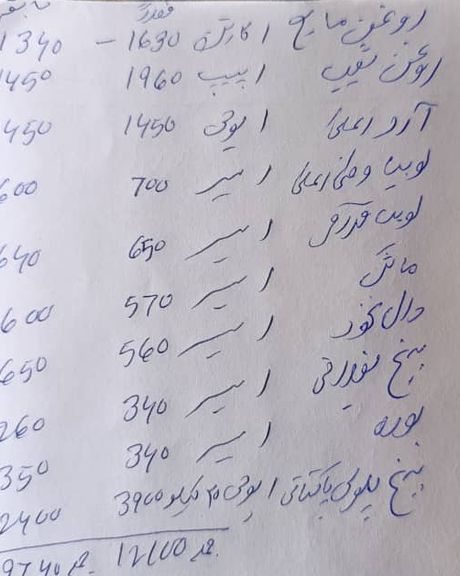 روغن مایع ۱ کارتن 1630 - 1340
روغن تیپ ۱ پیپ 1960 1450
آرد اعلی ۱ بوجی 1450 450
لوبیا وطنی اعلی ۱ سیر 700 600
لوبیا ۱ سیر 650 640
ماش ۱ سیر 570 600
دال نخود ۱ سیر 560 650
برنج ۱ سیر 340 260
بوره ۱ سیر 340 350
برنج پاکستانی ۱ بوجی 3900 2400
12100 9740